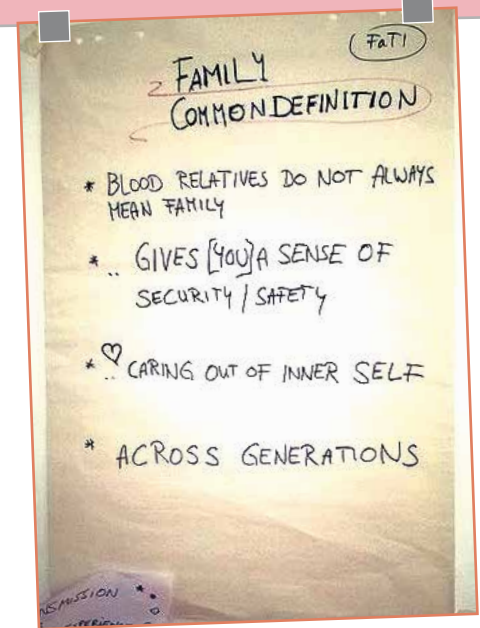 FaTI
FAMILY
COMMON DEFINITION
* BLOOD RELATIVES DO NOT ALWAYS
MEAN FAMILY
* .. GIVES [YOU] A SENSE OF
SECURITY / SAFETY
* ♡ .. CARING OUT OF INNER SELF
* ACROSS GENERATIONS